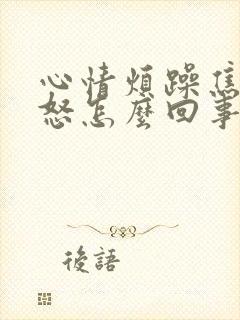 心情煩躁焦
怒怎麼回事
後語